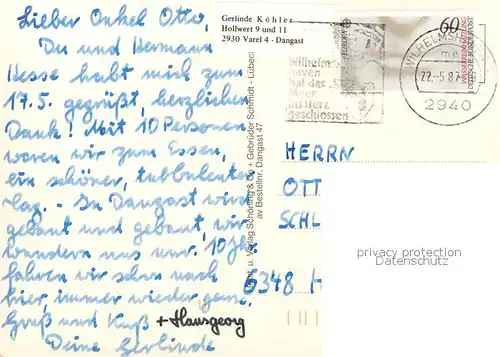 Lieber Onkel Otto,
Du und Hermann
Hesse habt mich zum
17.5. gegrüßt, herzlichen
Dank! Mit 10 Personen
waren wir zum Essen,
ein schöner, turbulenter
Tag. - In Dangast wird
gebaut und gebaut, wir
wundern uns nur. 10 Jh.
fahren wir schon nach
hier, immer wieder gern.
Gruß und Kuß + Hausgeorg
Deine Gerlinde
Gerlinde Köhler
Hollwert 9 und 11
2930 Varel 4 - Dangast
u. Verlag Schöning & Co + Gebrüder Schmidt - Lübeck
av Bestellnr. Dangast 47
Wilhelms-
haven
hat das
Meer
ins Herz
geschlossen
WILHELMSH
me
22.-5.87
2940
60
DEUTSCHE BUNDESPOST
HERRN
OTT
SCHL
6348 H
privacy protection
Datenschutz